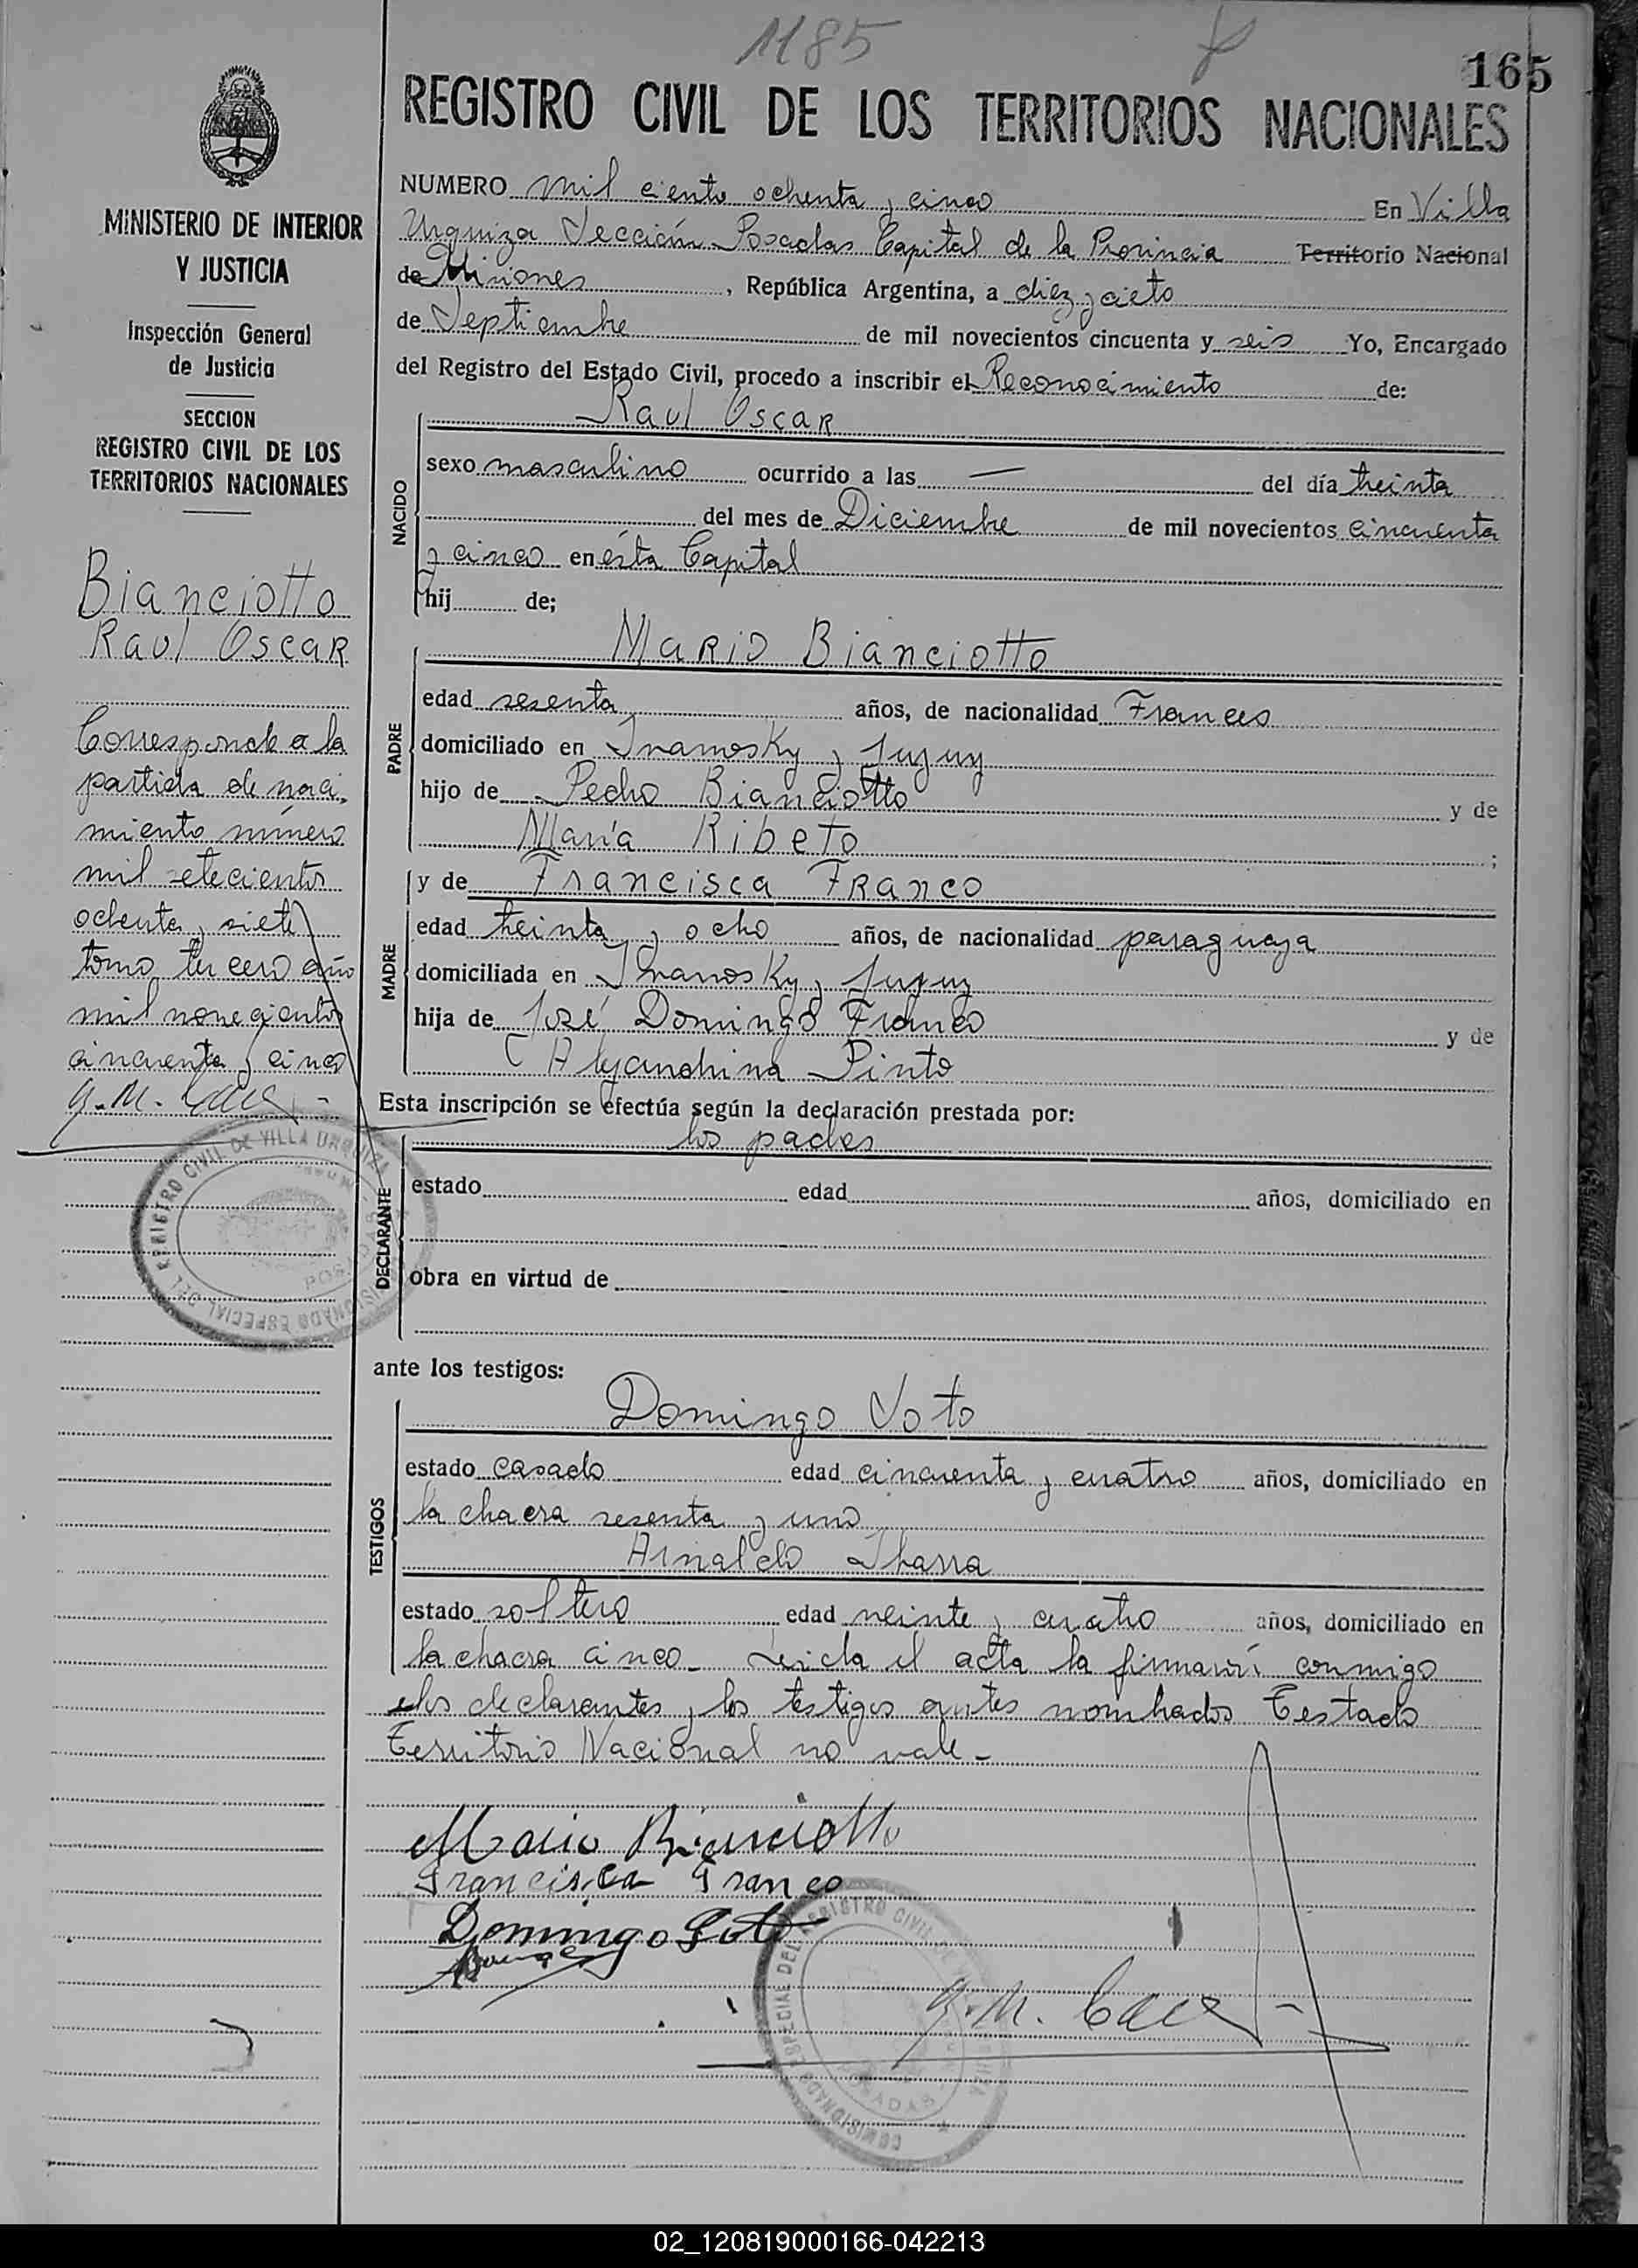 1185
165
REGISTRO CIVIL DE LOS TERRITORIOS NACIONALES
MINISTERIO DE INTERIOR
Y JUSTICIA
Inspección General
de Justicia
SECCION
REGISTRO CIVIL DE LOS
TERRITORIOS NACIONALES
Bianciotto
Raul Oscar
Corresponde a la
partida de naci-
miento número
mil setecientos
ochenta y siete
tomo tercero año
mil novecientos
cincuenta y cinco
NUMERO mil ciento ochenta y cinco En Villa
Urquiza Sección Posadas Capital de la Provincia Territorio Nacional
de Misiones, República Argentina, a diez y siete
de Septiembre de mil novecientos cincuenta y seis Yo, Encargado
del Registro del Estado Civil, procedo a inscribir el Reconocimiento de:
Raul Oscar
NACIDO
sexo masculino ocurrido a las — del día treinta
del mes de Diciembre de mil novecientos cincuenta
y cinco en ésta Capital
hij de;
PADRE
Mario Bianciotto
edad sesenta años, de nacionalidad Frances
domiciliado en y Jujuy
hijo de Pedro Bianciotto y de
María Ribeto;
MADRE
y de Francisca Franco
edad treinta y ocho años, de nacionalidad paraguaya
domiciliada en y Jujuy
hija de José Domingo Franco y de
Alejandrina Pinto
Esta inscripción se efectúa según la declaración prestada por:
los padres
DECLARANTE
estado edad años, domiciliado en
obra en virtud de
ante los testigos:
TESTIGOS
Domingo Soto
estado casado edad cincuenta y cuatro años, domiciliado en
la chacra sesenta y uno
Arnaldo Ibarra
estado soltero edad veinte y cuatro años, domiciliado en
la chacra cinco - Leida el acta la firmaron conmigo
los declarantes y los testigos antes nombrados Testado
Territorio Nacional no vale -
Mario Bianciotto
Francisca Franco
Domingo Soto
COMISIONADO ESPECIAL DEL REGISTRO CIVIL DE VILLA URQUIZA
POSADAS
02_120819000166-042213